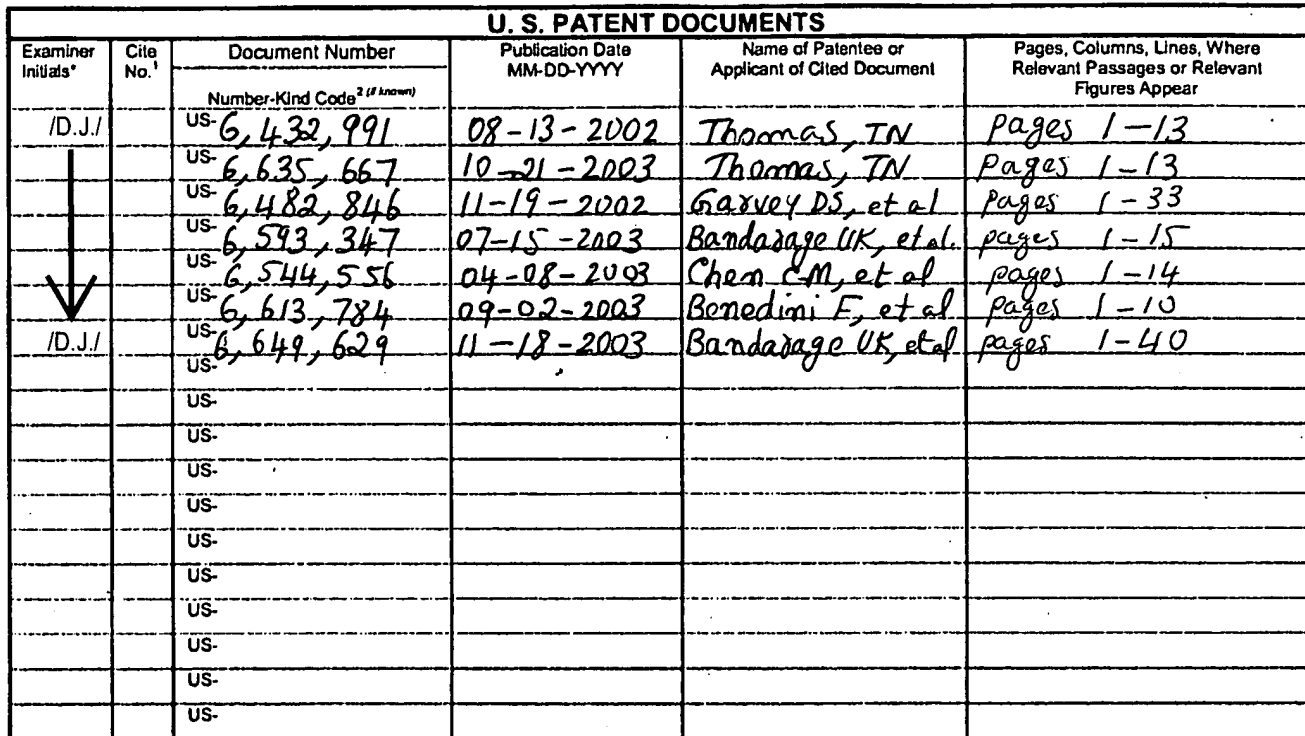 U. S. PATENT DOCUMENTS
Examiner Initials* Cite No.1 Document Number Publication Date MM-DD-YYYY Name of Patentee or Applicant of Cited Document Pages, Columns, Lines, Where Relevant Passages or Relevant Figures Appear
Number-Kind Code2 (if known)
/D.J./ US- 6,432,991 08-13-2002 Thomas, TN pages 1-13
US- 6,635,667 10-21-2003 Thomas, TN pages 1-13
US- 6,482,846 11-19-2002 Garvey DS, et al pages 1-33
US- 6,593,347 07-15-2003 Bandarage UK, et al. pages 1-15
US- 6,544,556 04-08-2003 Chen CM, et al pages 1-14
US- 6,613,784 09-02-2003 Benedini F, et al pages 1-10
/D.J./ US- 6,649,629 11-18-2003 Bandarage UK, et al pages 1-40
US-
US-
US-
US-
US-
US-
US-
US-
US-
US-
US-